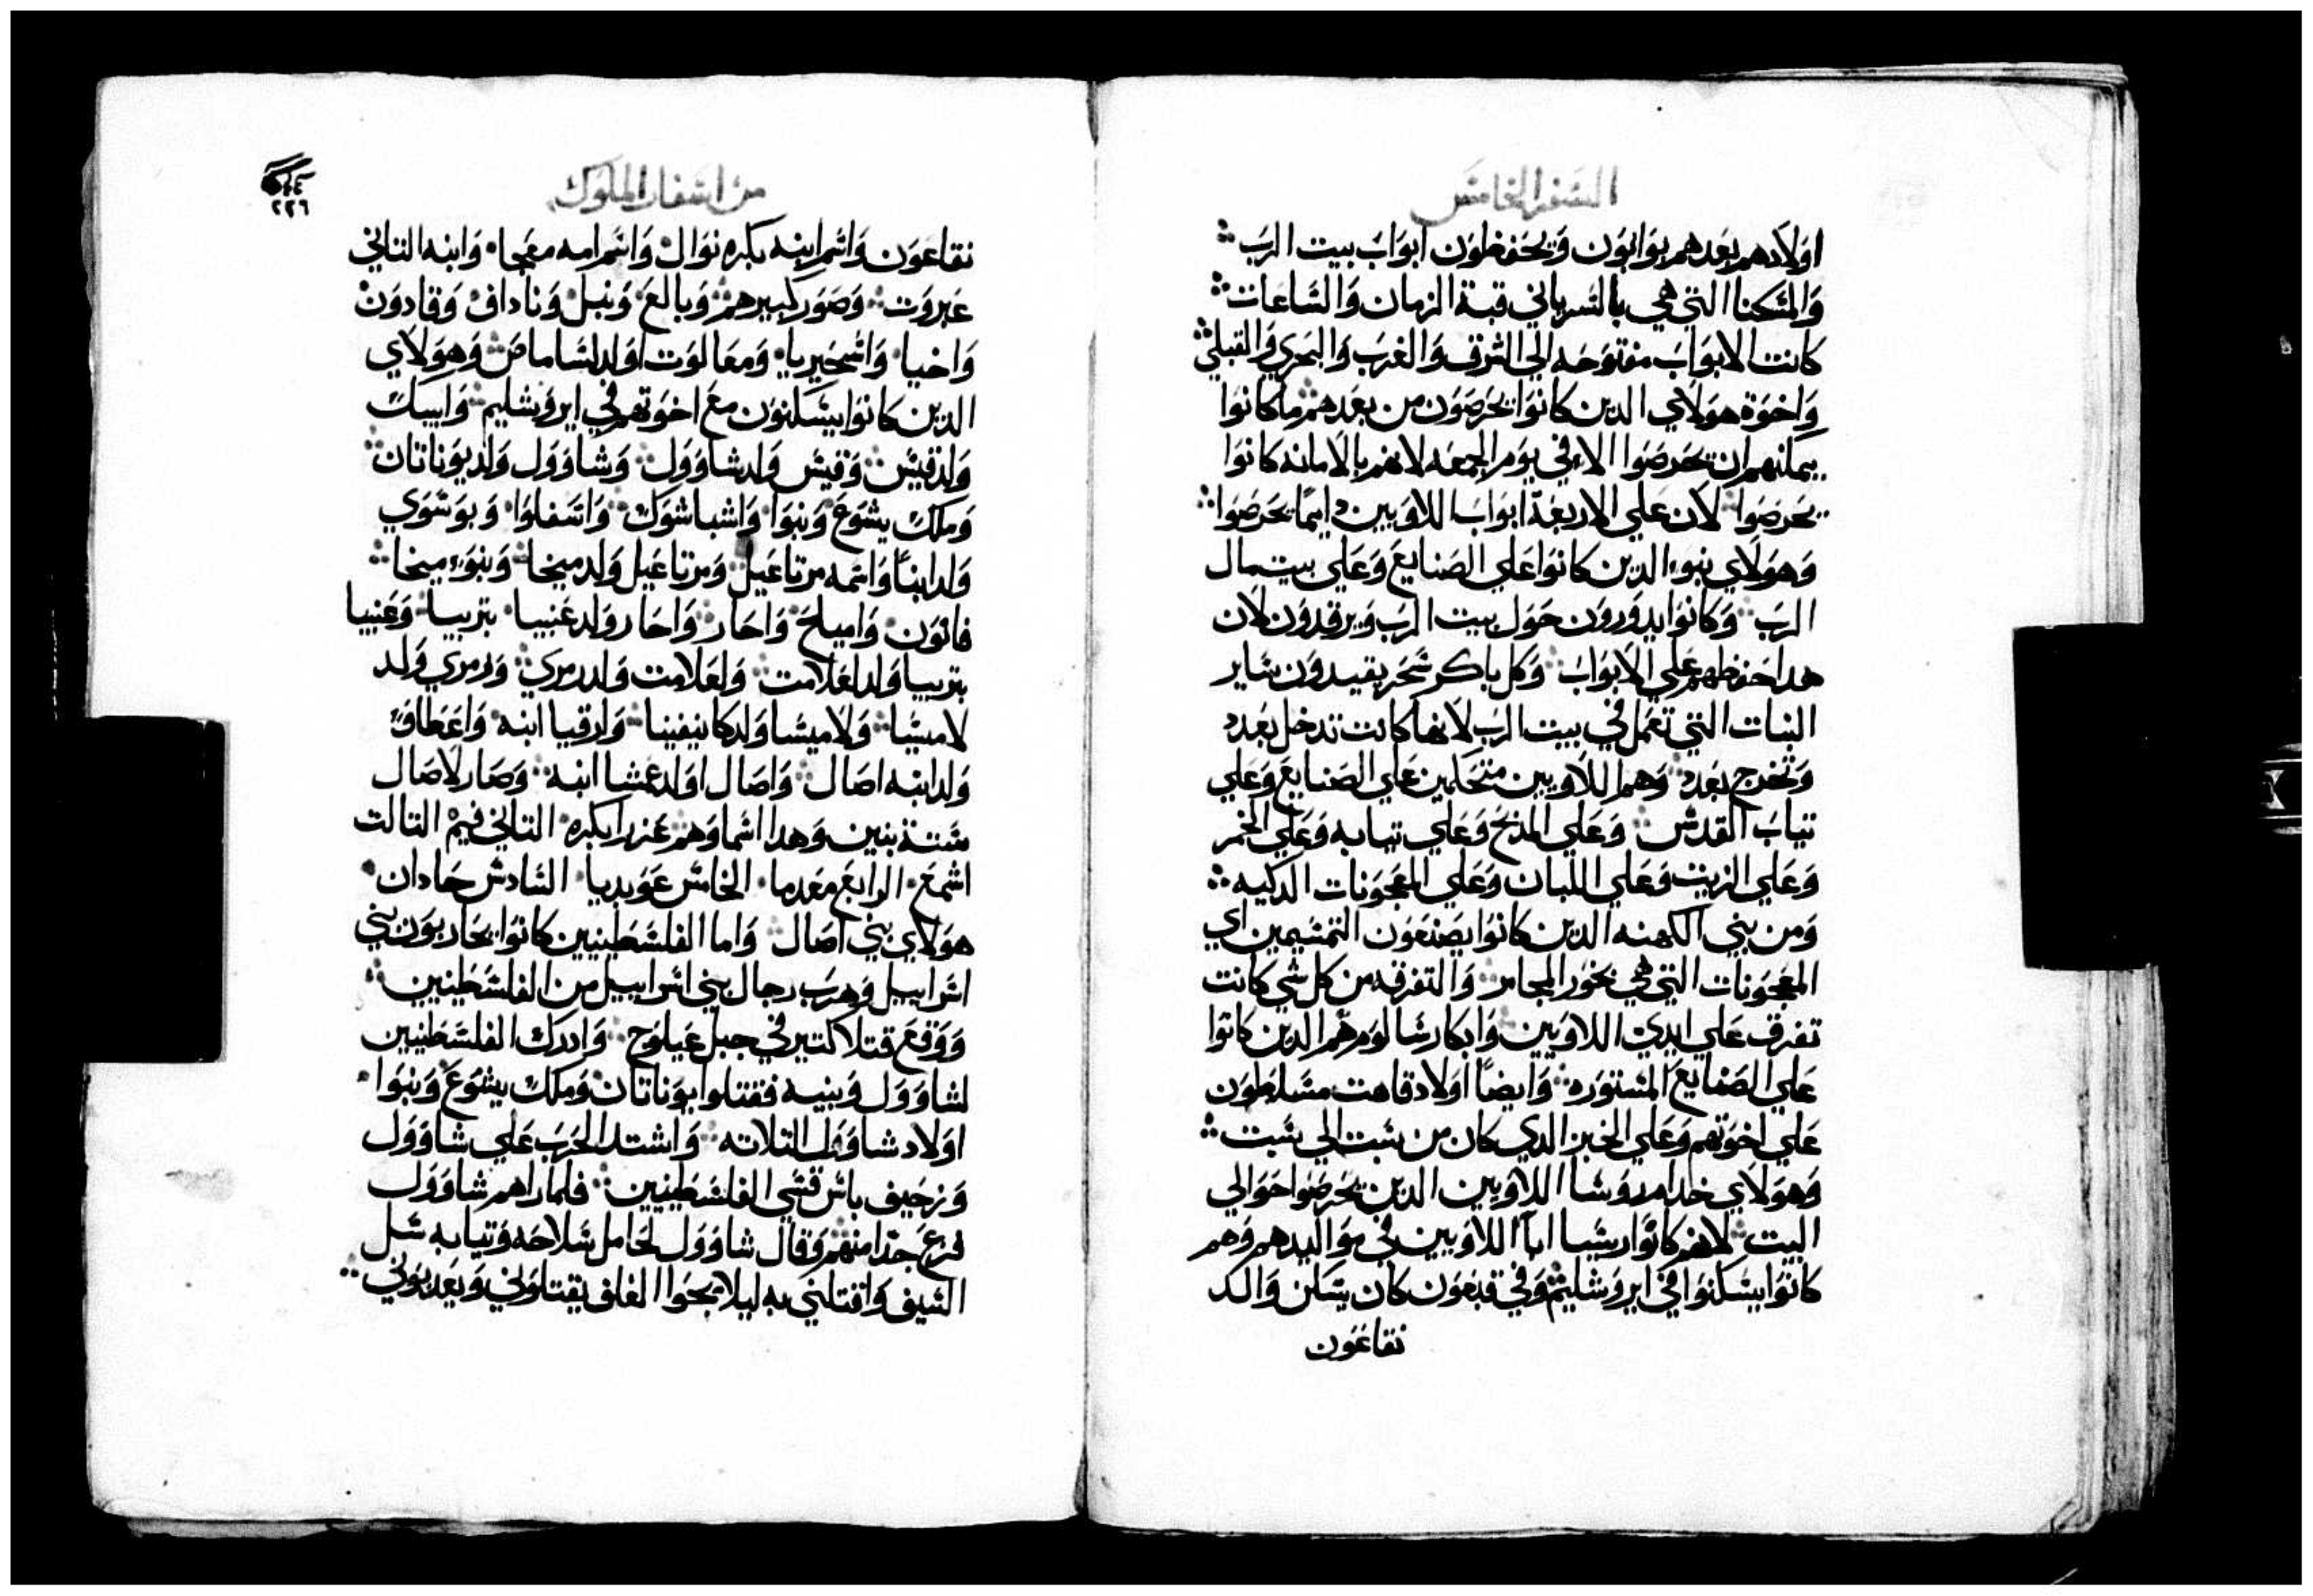 السفر الخامس
اولادهم بعدهم بوابون ويحفظون ابواب بيت الرب
والمسكنا التي هي بالسرياني قبة الزمان والساعات
كانت الابواب مفتوحه الي الشرق والغرب والبحري والقبلي
واخوة هولاي الدين كانوا يحرصون من بعدهم ما كانوا
يمكنهم ان يحرصوا الا في يوم الجمعه لانهم بالامانه كانوا
يحرصوا لان علي الاربعة ابواب اللاويين دايما يحرصوا
وهولاي بنوا الدين كانوا علي الصنايع وعلي بيت مال
الرب وكانوا يدورون حول بيت الرب ويرقدون لان
هدا حفظهم علي الابواب وكل باكر سحر يقيدون ساير
النيات التي تعمل في بيت الرب لانها كانت تدخل بعدد
وتخرج بعدد وهم اللاويين متحكمين علي الصنايع وعلي
تياب القدس وعلي المدبح وعلي تيابه وعلي الخمر
وعلي الزيت وعلي اللبان وعلي المعجونات الدكيه
ومن بني الكهنه الدين كانوا يصنعون التمسيمين اي
المعجونات التي هي بخور المجامر والتفرقه من كل شي كانت
تفرق علي ايدي اللاويين وابكار شالوم هم الدين كانوا
علي الصنايع المستوره وايضا اولاد قاهت مسلطون
علي اخوتهم وعلي الخبز الدي كان من سبت الي سبت
وهولاي خدام روسا اللاويين الدين يحرصوا حوالي
البيت لانهم كانوا ريسا ابا اللاويين في مواليدهم وهم
كانوا يسكنوا في ايروشليم وفي قبعون كان يسكن والد
نقاعون
من اسفار الملوك
٢٢٦
نقاعون واسم ابنه بكره نوال واسم امه معجا وابنه التاني
عبروت وصور كبيرهم وبالع ونبل وناداف وقادون
واخيا واسحيريا ومعالوت اولد لساماص وهولاي
الدين كانوا يسكنون مع اخوتهم في ايروشليم وابيك
ولد قيس وقيس ولد شاوول وشاوول ولد يوناتان
وملك يشوع وبنوا واشباشوك واتسفلوا وبوسوي
ولد ابنا واسمه مرتاعيل ومرتاعيل ولد ميخا وبنوء ميخا
فاتون واميلح واحار واحار ولد عنبيا بتربيا وعنبيا
بتربيا ولد لعلامت ولعلامت ولد رمري ورمري ولد
لاميسا ولاميسا ولد كانيفينا وارقيا ابنه واعطاف
ولد ابنه اصال واصال اولد عمشا ابنه وصار لاصال
ستة بنين وهدا اسماوهم عزرا بكره التاني فيم التالت
اشمع الرابع معدما الخامس عوبديا السادس حادان
هولاي بني اصال واما الفلسطينيين كانوا يحاربون بني
اسراييل وهرب رجال بني اسراييل من الفلسطينيين
ووقع قتلا كتير في جبل عيلوج وادرك الفلسطينيين
لشاوول وبنيه فقتلوا يوناتان وملك يشوع وبنوا
اولاد شاوول التلاته واشتد الحرب علي شاوول
وزحيف باس قسي الفلسطينيين فلما راهم شاوول
فزع جدا منهم وقال شاوول لحامل سلاحه وتيابه سل
السيف واقتلني به ليلا يجوا الغلف يقتلوني ويعدبوني